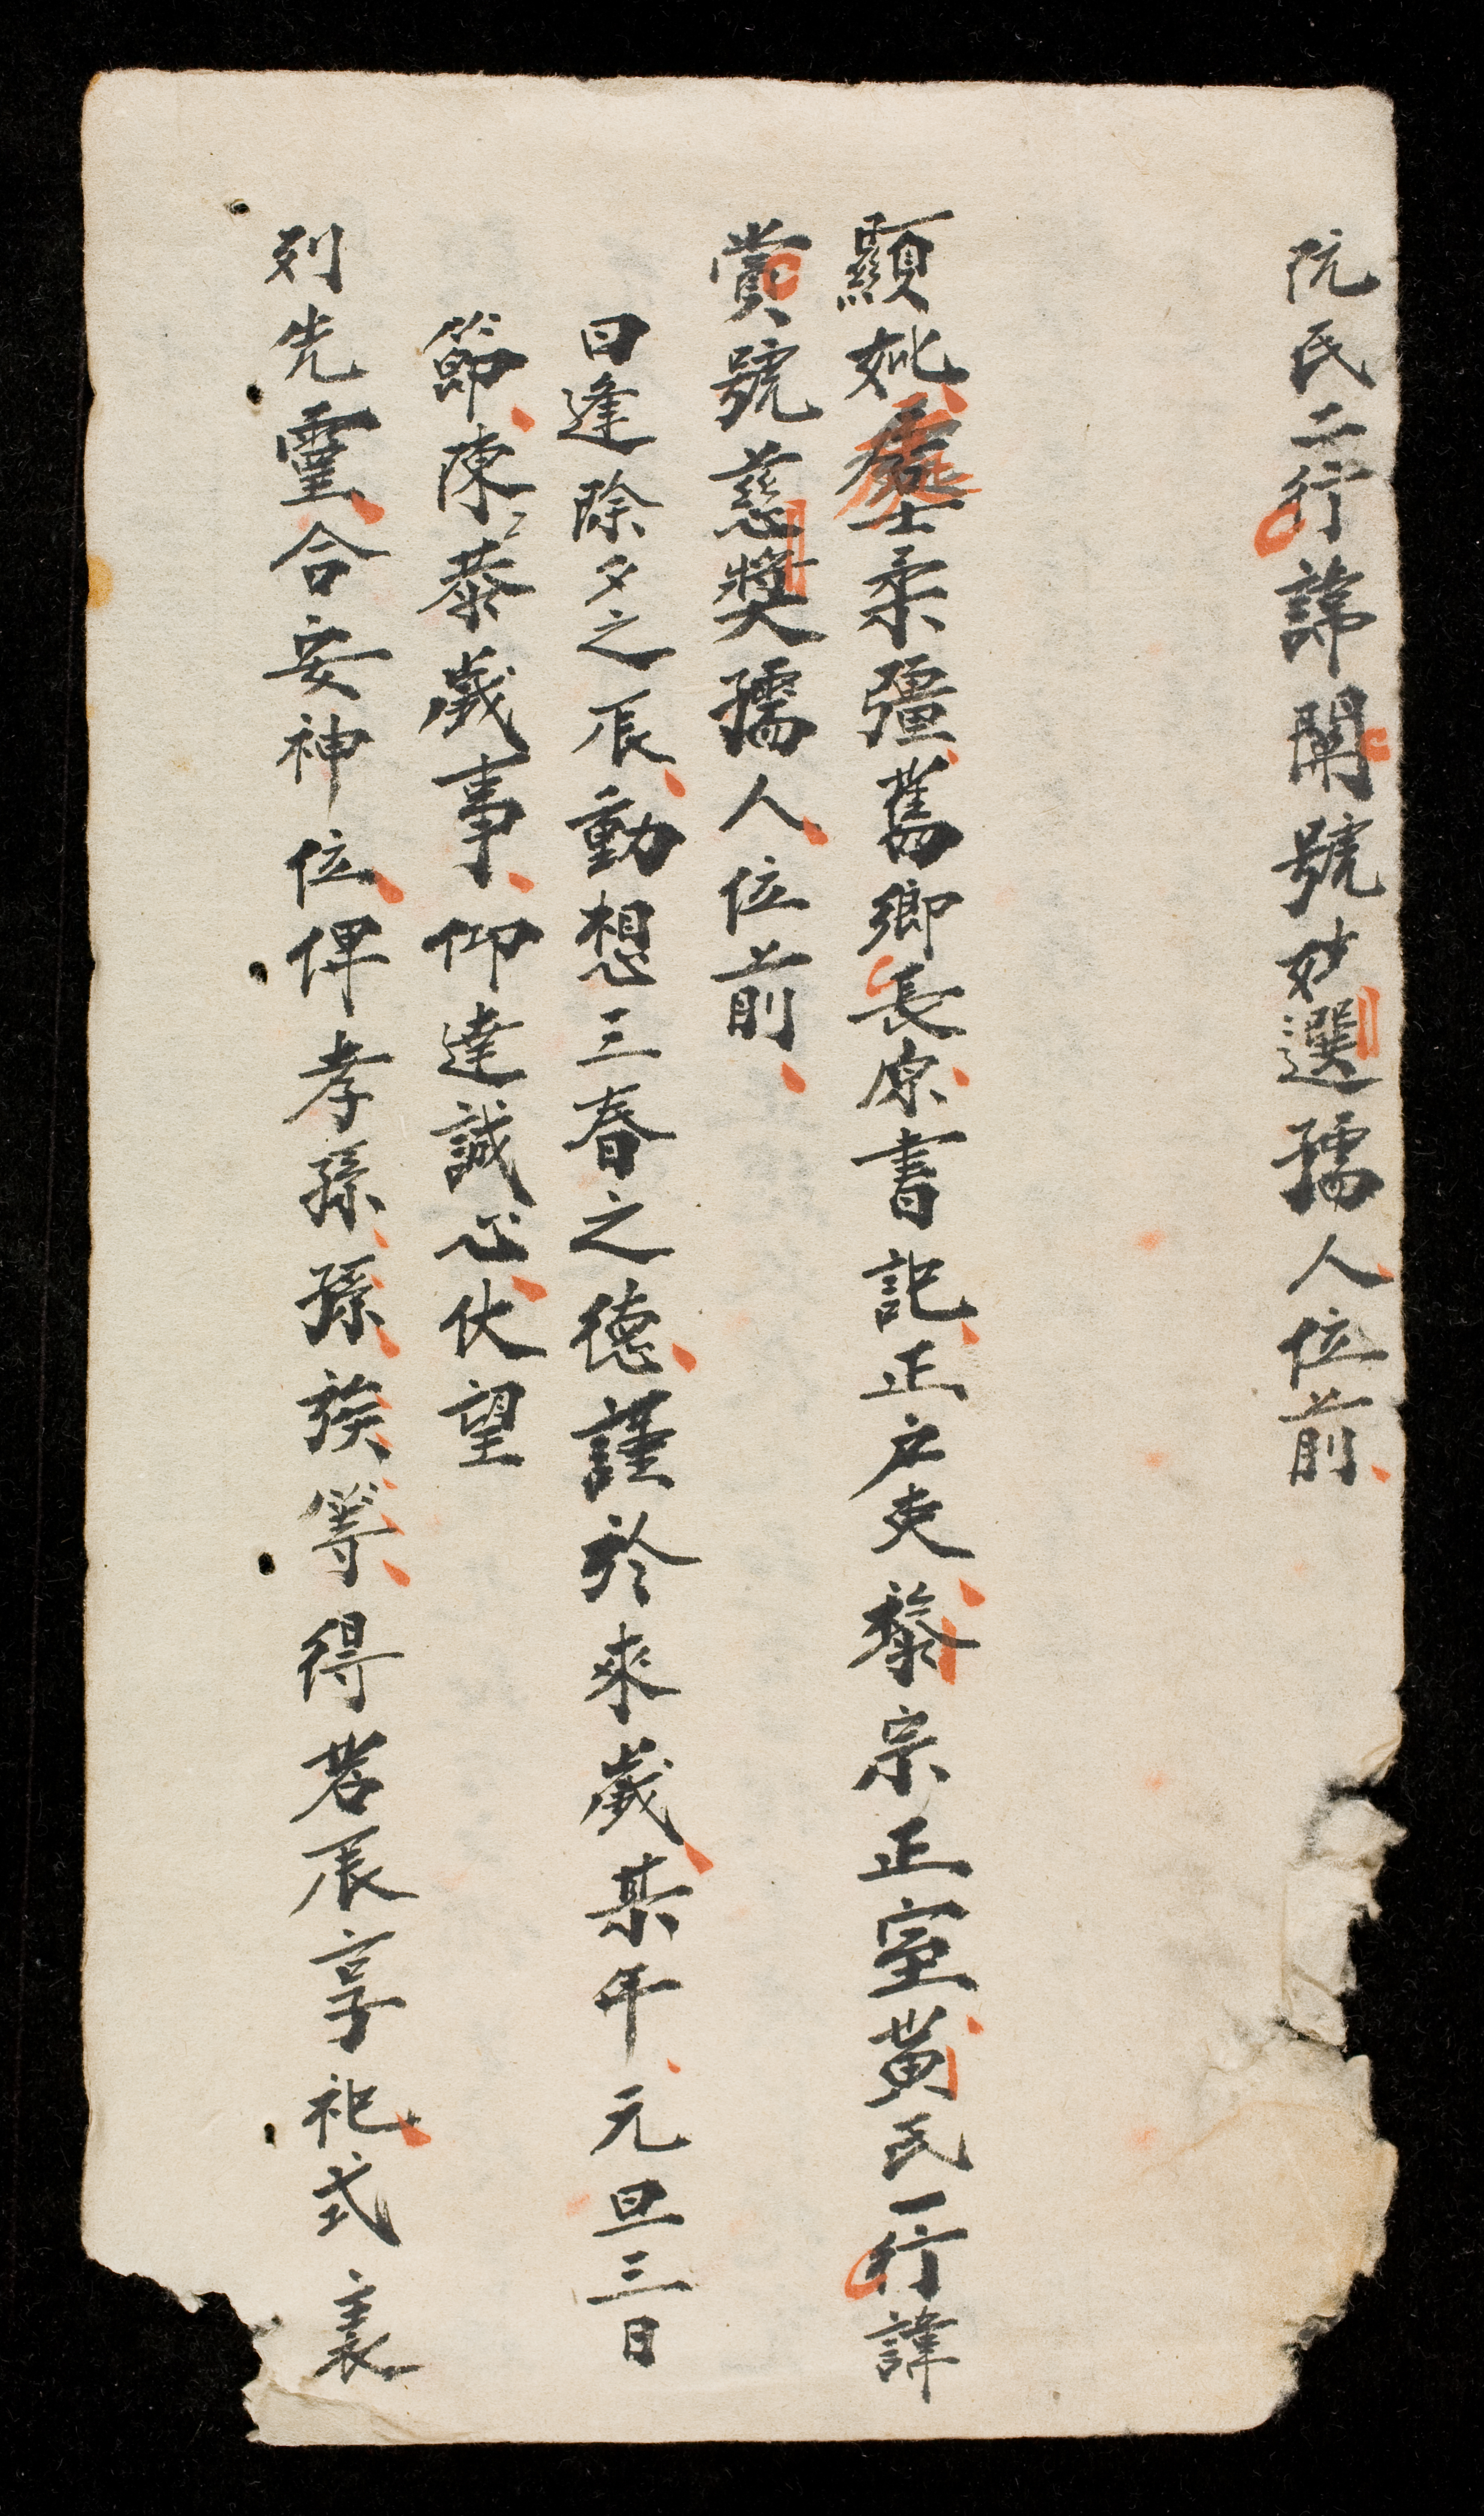 阮氏二行諱開號妙選孺人位前
顯妣處士柔彊舊鄉長原書記正户吏黎宗正室黄氏一行諱
賞號慈奬孺人位前
日逢除夕之辰動想三春之德謹於來歲某年元旦三日
節陳恭歲事仰達誠心伏望
列先靈合安神位俾孝孫孫族等得若辰享祀式表